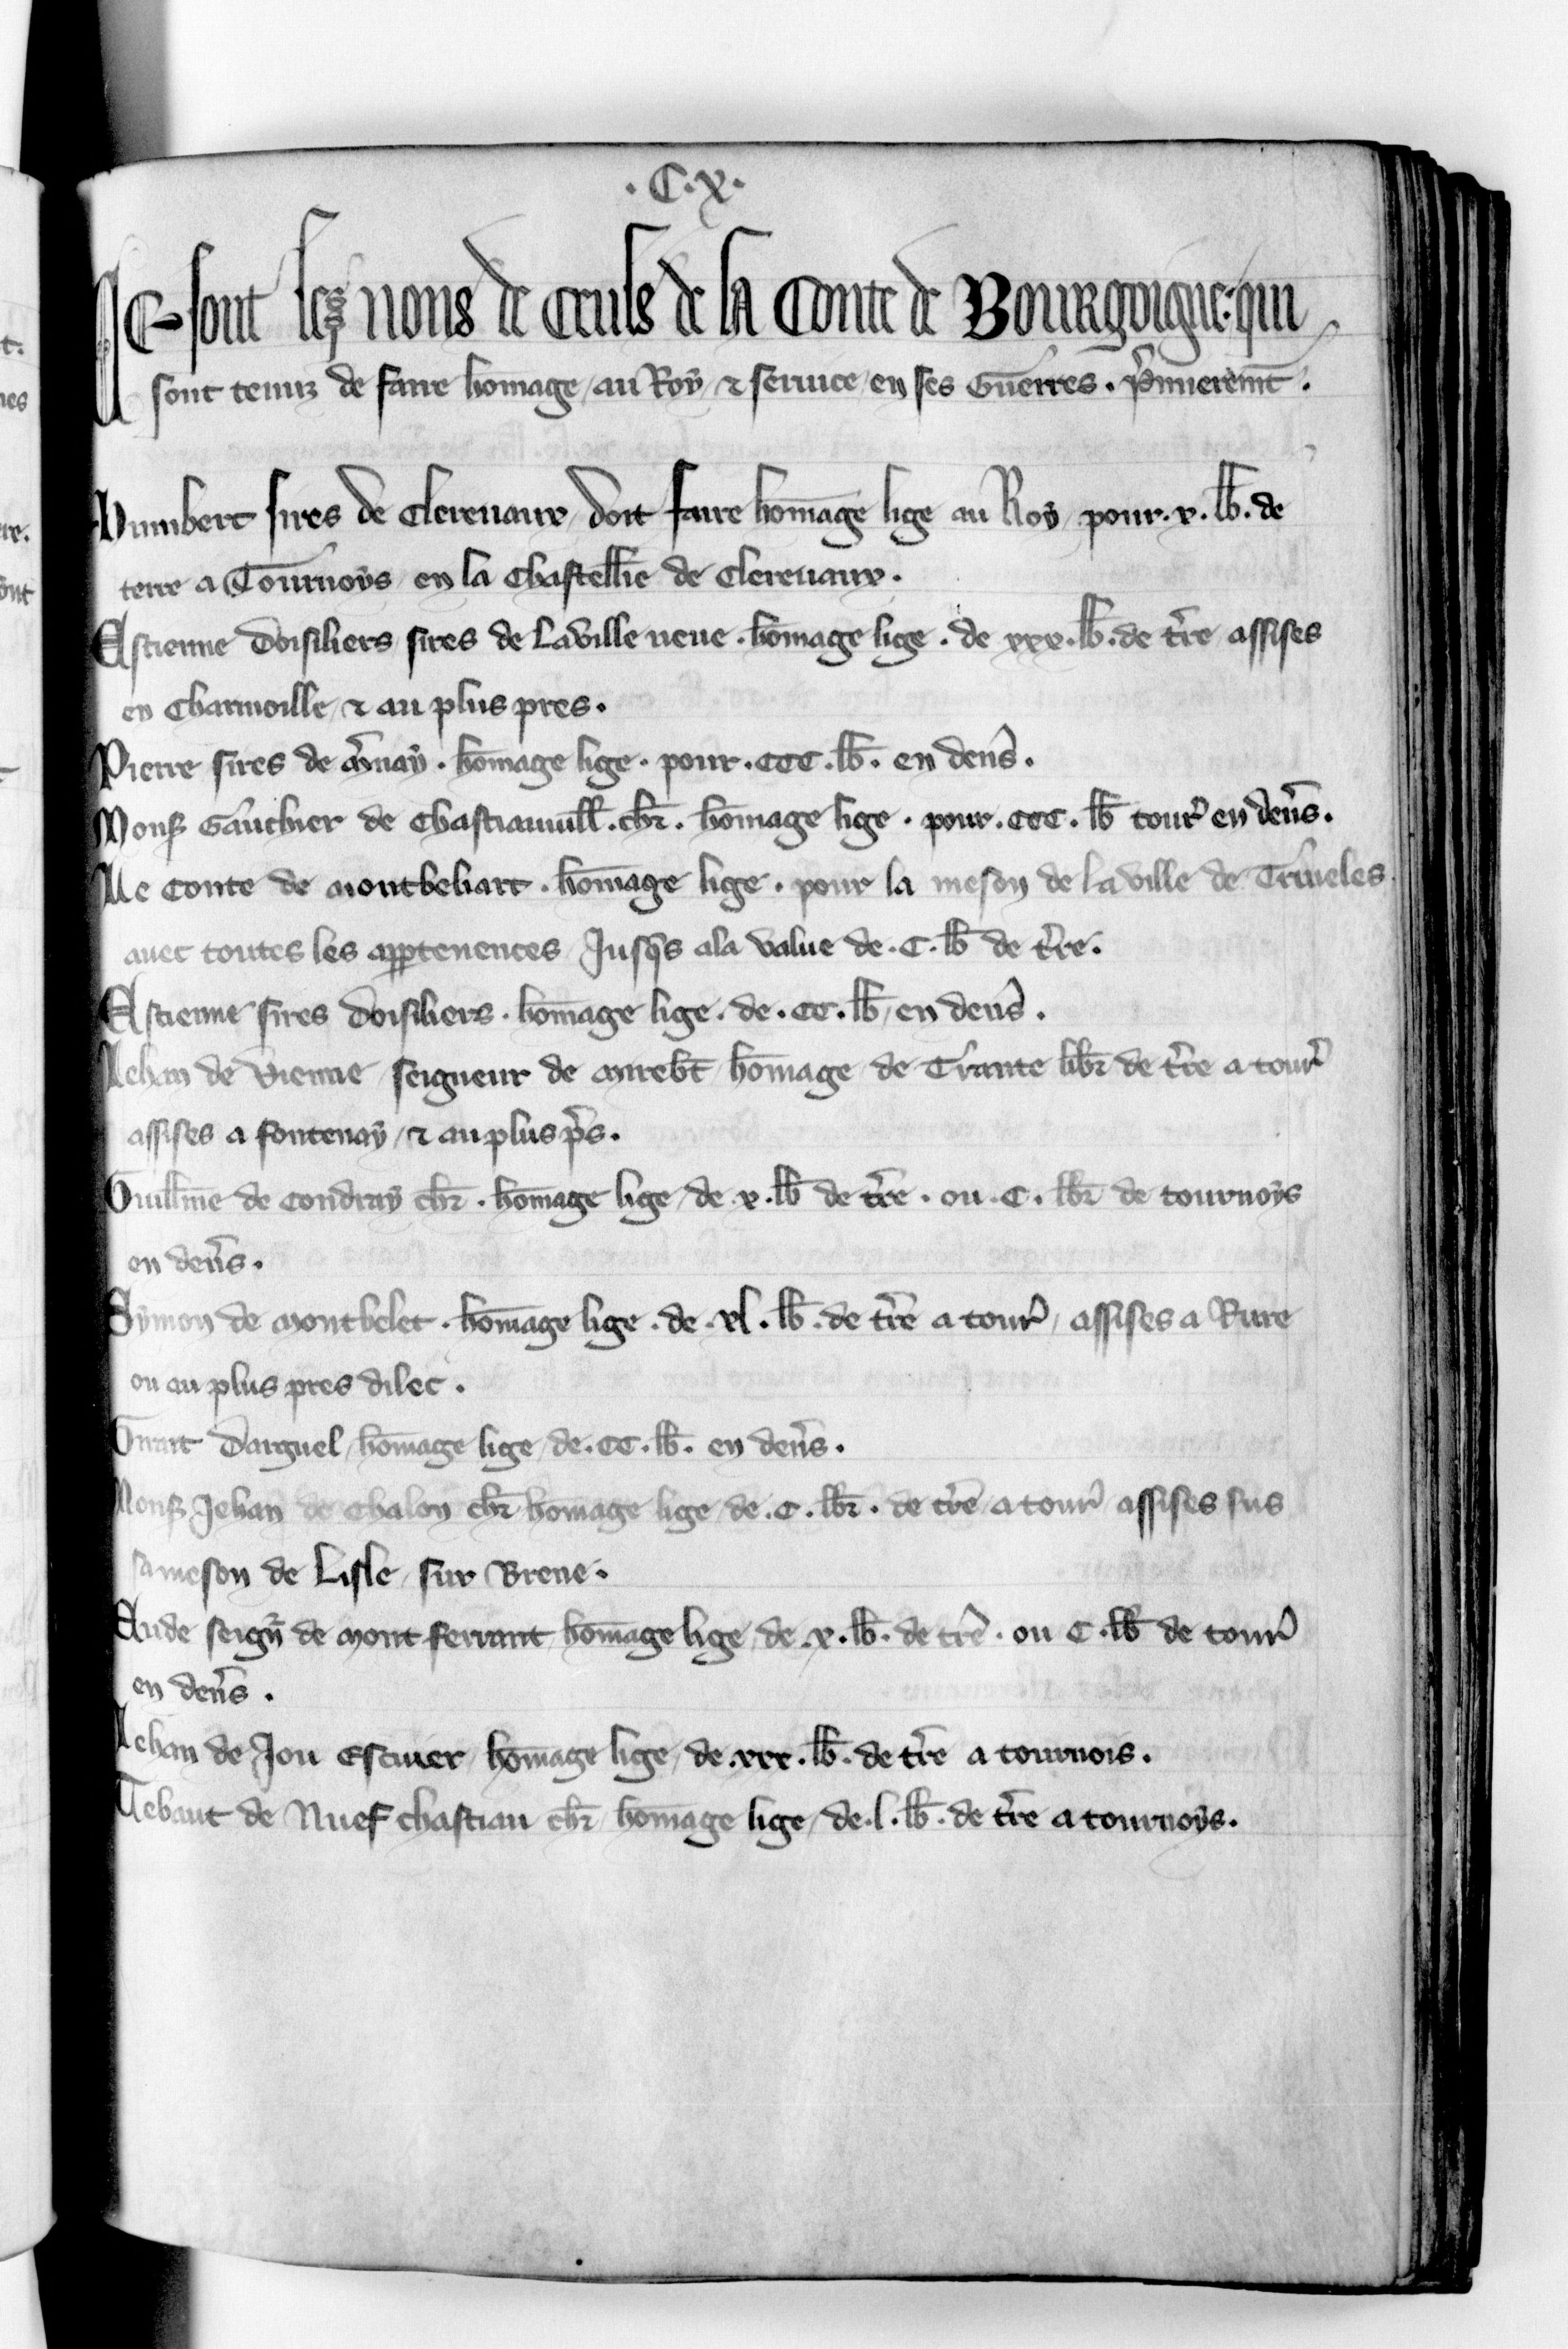 .C.X.
Ce sont les nons de ceuls de la Conte de Bourgoigne. qui
sont tenuz de faire homage / au Roy / ⁊ seruice / en ses Guerres. P̾mieremt̄.
Humbert sires de Clereuaux / doit faire hom̄age lige au Roy / pour .x. lb̄. de
terre a Tournoys / en la Chastell̄ie de Clereuaux.
Estienne Doisiliers / sires de La ville neue . hom̄age lige . de xxx. lb̄. de t̾re assises
en Charmoille / ⁊ au plus pres.
Pierre sires de m̾nay . hom̄age lige . pour .CCC. lb̄. en den̾s.
Monss̾ Gauthier de Chastiauuill̄. chr̄. hom̄age lige . pour .CCC. lb̄ tour̾ en den̾s.
Le Conte de montbeliart . hom̄age lige . pour la meson de la ville de Trueles
auec toutes les apꝑtenences / Jusq̾s a la value de .C. lb̄ de t̾re.
Estienne sires Doisiliers . hom̄age lige . de .CC. lb̄ / en den̾s.
Jehan de Vienne / seigneur de mirebt̄ / hom̄age / de Trante lib̄r de t̾re a tour̾
assises a fontenay / ⁊ au plus p̾s.
Guill̄me de Condray chr̄ . hom̄age lige / de .x. lb̄ de t̾re . ou .C. lbr̄ de tournoys
en den̾s.
Aymon de montbelet . hom̄age lige . de .xl. lb̄. de t̾re a tour̾ / assises a Rure
ou au plus pres dilec.
Girart Darguel / hom̄age lige / de .CC. lb̄. en den̾s.
Monss̾ Jehan de Chalon chr̄ hom̄age lige / de .C. lbr̄. de t̾re / a tour̾ assises sus
sa meson de Lisle / sur Brene.
Eude seign̾ de mont ferrant / hom̄age lige / de .x. lb̄. de t̾re . ou C. lb̄ de tour̾
en den̾s.
Jehan de Jou Escuier / hom̄age lige / de .xxx. lb̄. de t̾re a tournois.
Tebaut de Nuef chastiau chr̄ / hom̄age lige / de .l. lb̄. de t̾re a tournoys.